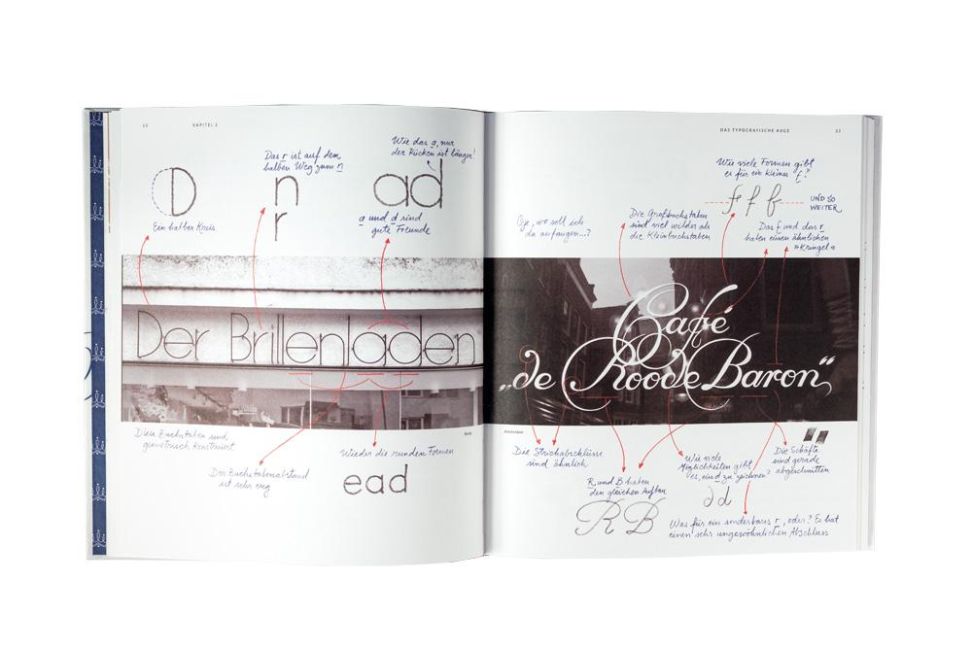 KAPITEL 2
D n r ad
Das r ist auf dem
halben Weg zum n
Wie das a, nur
der Rücken ist länger!
Ein halber Kreis
a und d sind
gute Freunde
Der Brillenladen
Diese Buchstaben sind
geometrisch konstruiert
Der Buchstabenabstand
ist sehr eng
Wieder die runden Formen
ead
DAS TYPOGRAFISCHE AUGE
Wie viele Formen gibt
es für ein kleines f?
f f f
UND SO
WEITER
Oje, wo soll ich
da anfangen...?
Die Großbuchstaben
sind viel wilder als
die Kleinbuchstaben
Das f und das r
haben einen ähnlichen
»Kringel«
Café
„de Roode Baron“
Die Strichabschlüsse
sind ähnlich
R und B haben
den gleichen Aufbau
R B
Wie viele
Möglichkeiten gibt
es, ein d zu zeichnen?
d d
Die Schäfte
sind gerade
abgeschnitten
Was für ein sonderbares r, oder? Es hat
einen sehr ungewöhnlichen Abschluss